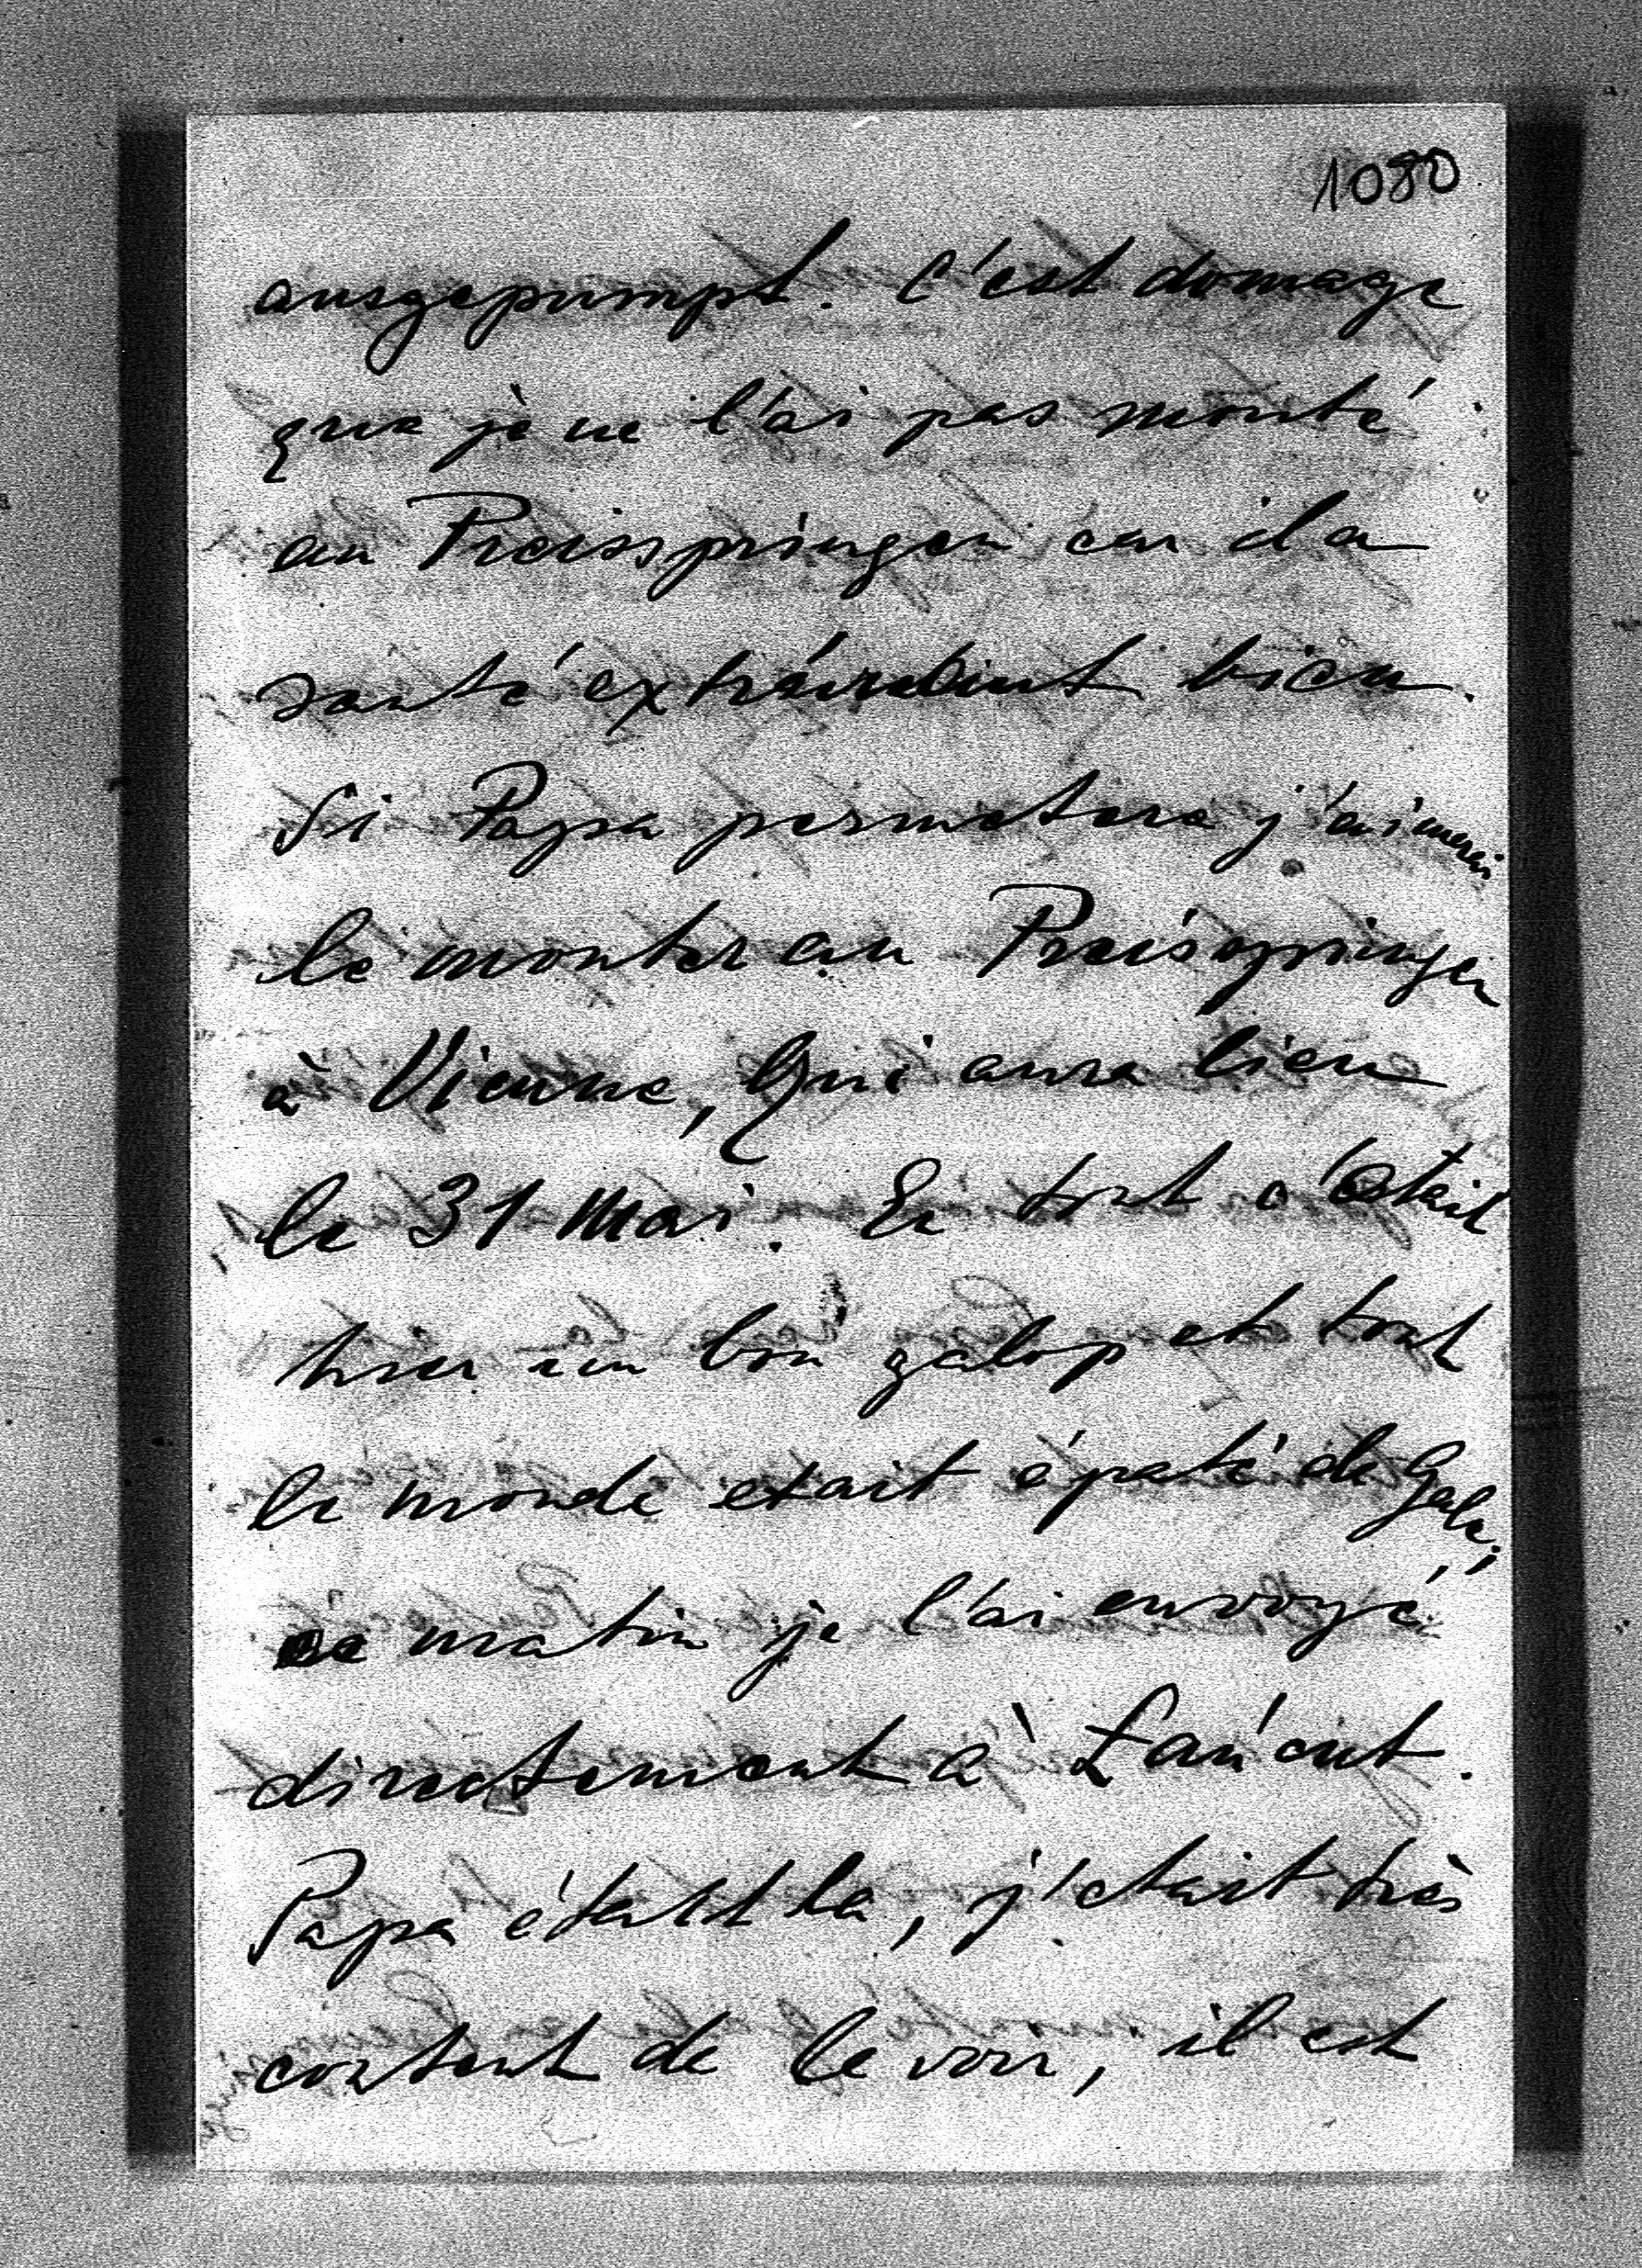 1080
ausgepumpt. C'est domage
que je ne l'ai pas monté
au Preisspringen car il a
sauté bien.
Si Papa permetera j'aimerais
le monter au Preisspringen
à Vienne, qui aura lieu
le 31 Mai. En tout c'était
hier un bon galop et tout
le monde etait épaté de
ce matin je l'ai envoyé
directement à Łańcut.
Papa était la, j'etait très
content de le voir, il est